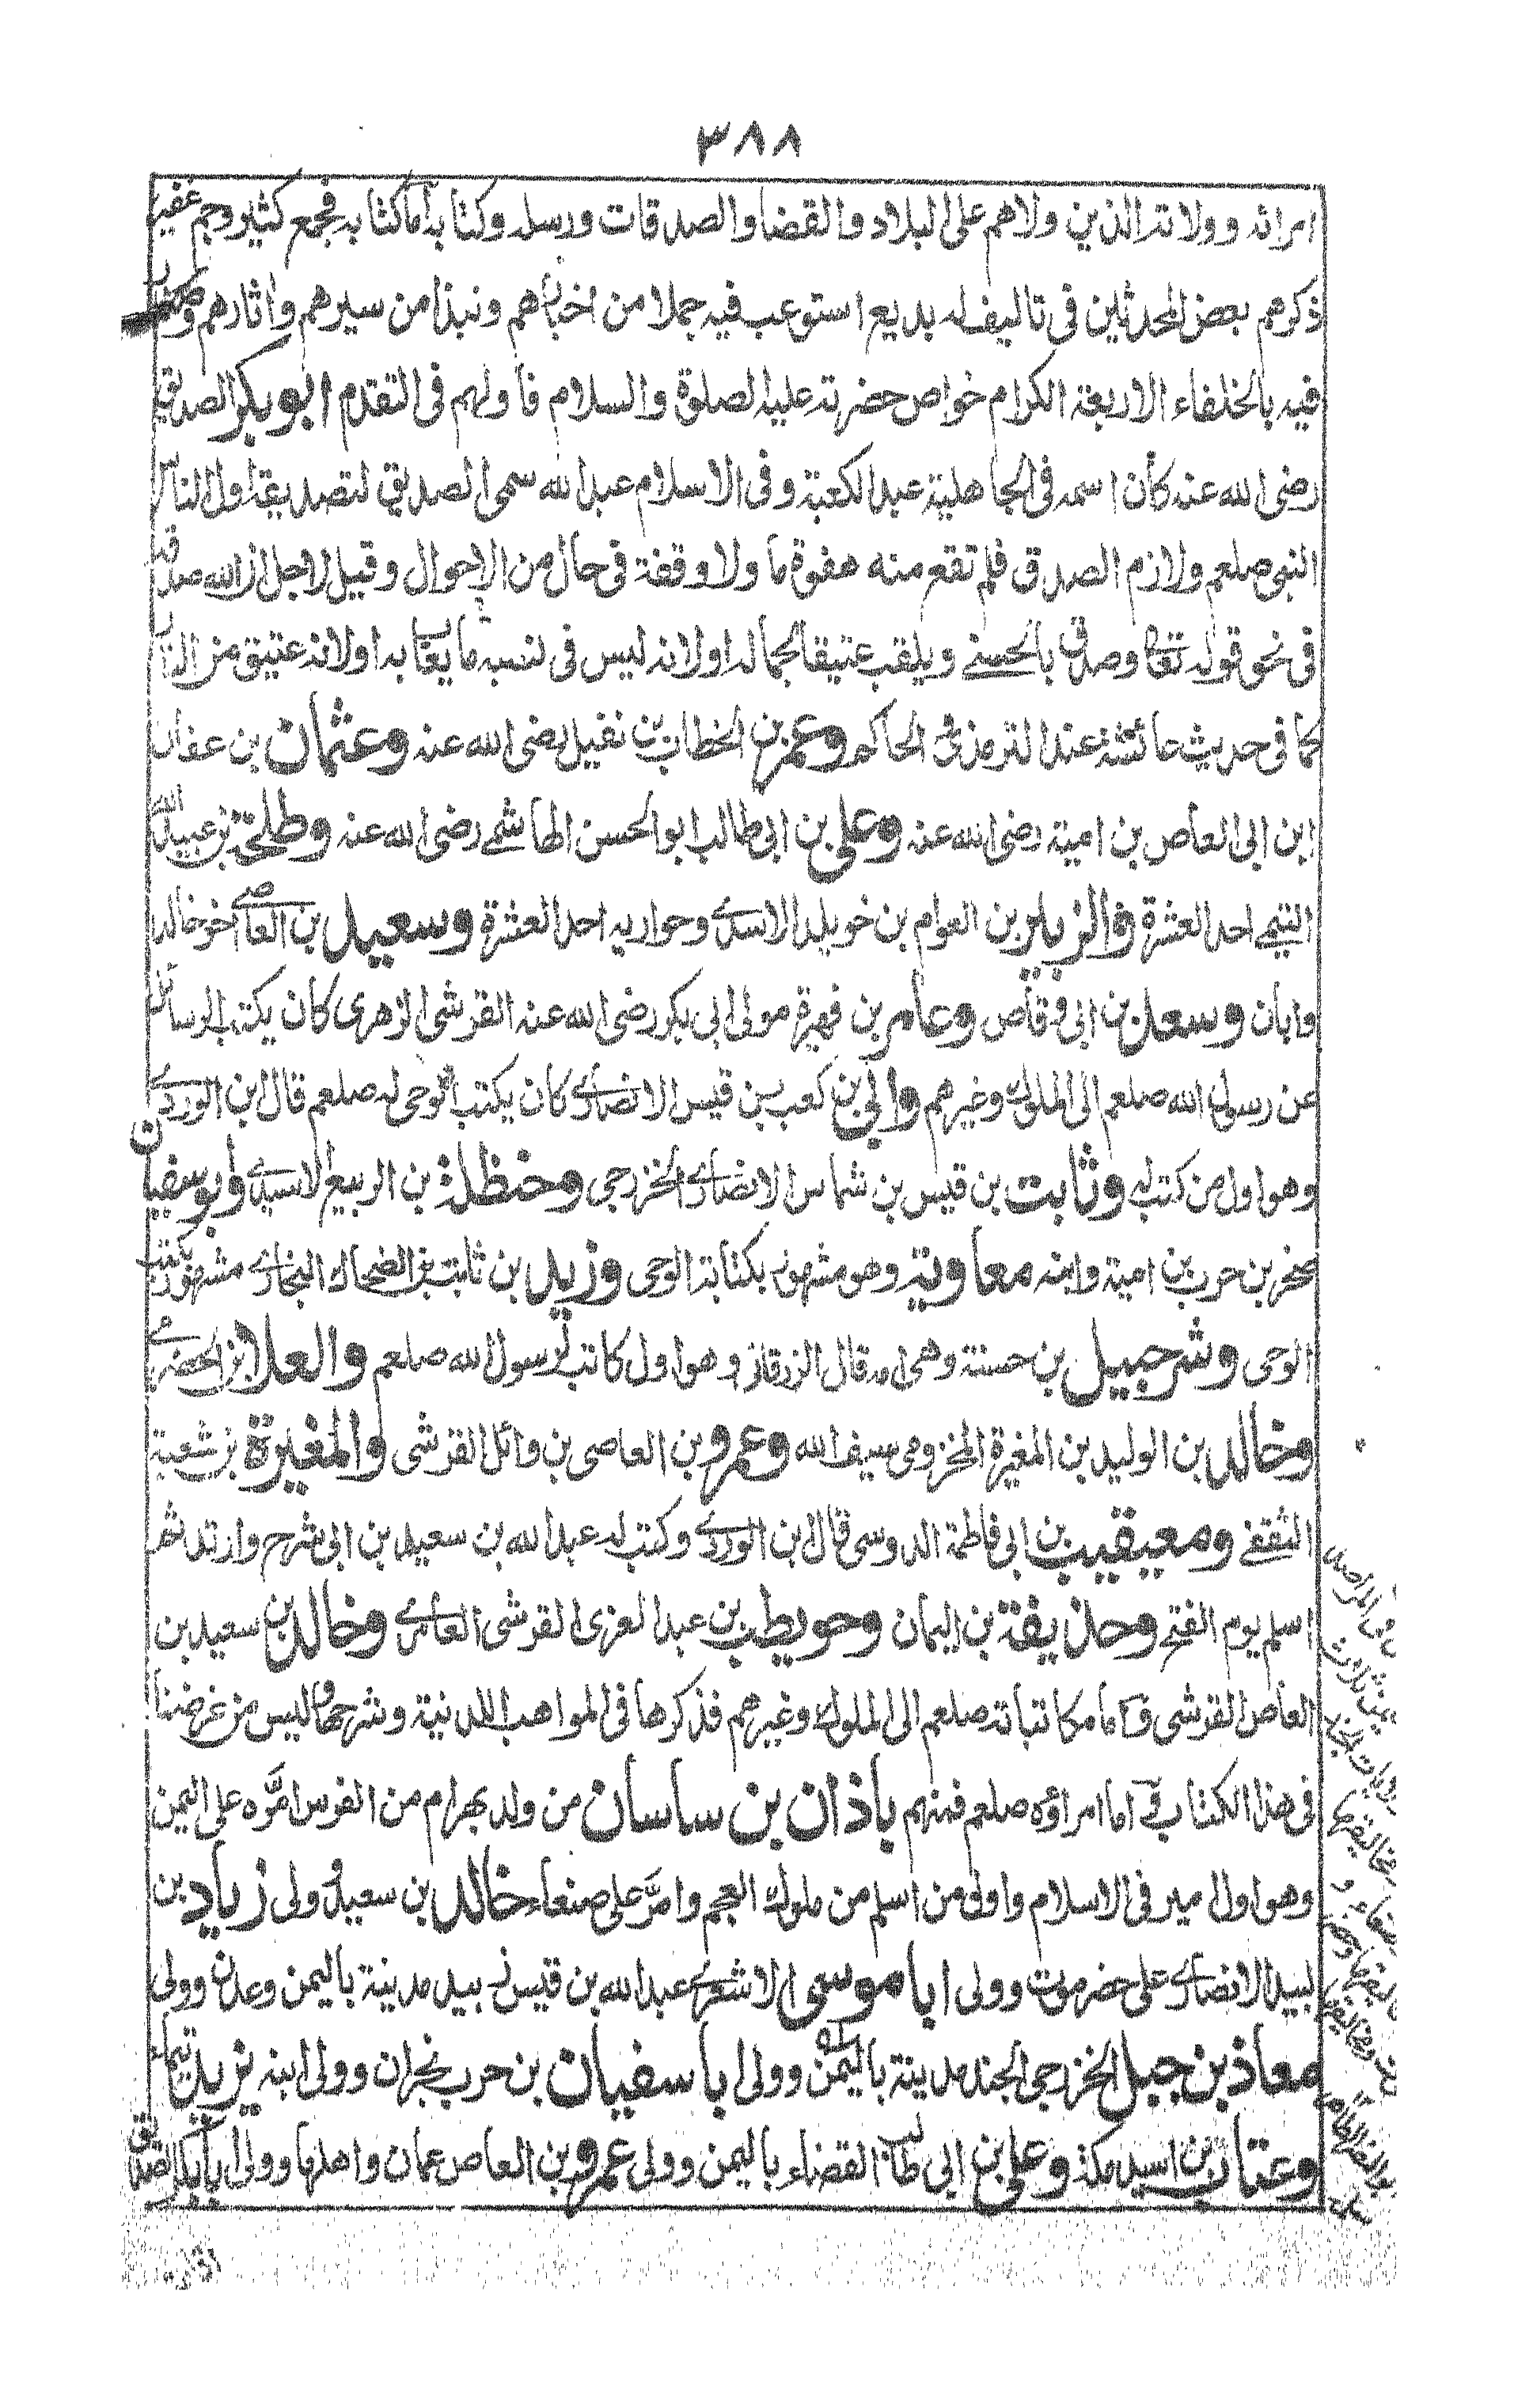 ٣٨٨
امرائه وولاته الذين ولاهم على البلاد والقضا والصدقات ورسله وكتابه أما كتابه فجمع كثير وجم غفير
ذكرهم بعض المحدثين فى تاليف له بديع استوعب فيه جملا من اخبارهم ونبذا من سيرهم واثارهم وصدر
فيه بالخلفاء الاربعة الكرام خواص حضرته عليه الصلوة والسلام فاولهم فى التقدم ابو بكر الصديق
رضى الله عنه كان اسمه فى الجاهلية عبد الكعبة وفى الاسلام عبد الله سمى الصديق لتصديقه اول الناس
النبى صلعم ولازم الصدق فلم تقع منه هفوة ما ولا وقفة فى حال من الاحوال وقيل لاجل ان الله صدقه
فى نحو قوله تعا وصدق بالحسنى ويلقب عتيقا لجماله او لانه ليس فى نسبه ما يعاب به او لانه عتيق من النار
كما فى حديث عائشة عند الترمذى الحاكم وعمر بن الخطاب بن نفيل رضى الله عنه وعثمان بن عفان
ابن ابى العاص بن امية رضى الله عنه وعلى بن ابى طالب ابو الحسن الهاشمى رضى الله عنه وطلحة بن عبيد الله
التيمى احد العشرة والزبير بن العوام بن خويلد الاسدى وحواريه احد العشرة وسعيد بن العاصى اخو خالد
وابان وسعد بن ابى وقاص وعامر بن فهيرة مولى ابى بكر رضى الله عنه القرشى الزهرى كان يكتب الرسائل
عن رسول الله صلعم الى الملوك وغيرهم وابى بن كعب بن قيس الانصارى كان يكتب الوحى له صلعم قال ابن الوردى
وهو اول من كتب له وثابت بن قيس بن شماس الانصارى الخزرجى وحنظلة بن الربيع الاسيدى وابو سفيان
صخر بن حرب بن امية وابنه معاوية وهو مشهور بكتابة الوحى وزيد بن ثابت بن الضحاك النجارى مشهور بكتب
الوحى وشرحبيل بن حسنة وهى امه قال الزرقانى وهو اول كاتب لرسول الله صلعم والعلا بن الحضرمى
وخالد بن الوليد بن المغيرة المخزومى سيف الله وعمرو بن العاصى بن وائل القرشى والمغيرة بن شعبة
الثقفى ومعيقيب بن ابى فاطمة الدوسى قال ابن الوردى وكتب له عبد الله بن سعيد بن ابى سرح وارتد ثم
اسلم يوم الفتح وحذيفة بن اليمان وحويطب بن عبد العزى القرشى العامرى وخالد بن سعيد بن
العاص القرشى واما مكاتباته صلعم الى الملوك وغيرهم فذكرها فى المواهب اللدنية وشرحها وليس من غرضنا
فى هذا الكتاب اما امراؤه صلعم فمنهم باذان بن ساسان من ولد بهرام من الفرس امره على اليمن
وهو اول امير فى الاسلام واول من اسلم من ملوك العجم وامر على صنعاء خالد بن سعيد وولى زياد بن
لبيد الانصارى على حضرموت وولى ابا موسى الاشعرى عبد الله بن قيس زبيد مدينة باليمن وعدن وولى
معاذ بن جبل الخزرجى الجند مدينة باليمن وولى ابا سفيان بن حرب نجران وولى ابنه يزيد تيماء
وعتاب بن اسيد مكة وعلى بن ابى طالب القضاء باليمن وولى عمرو بن العاص عمان واهلها وولى ابا بكر الصديق